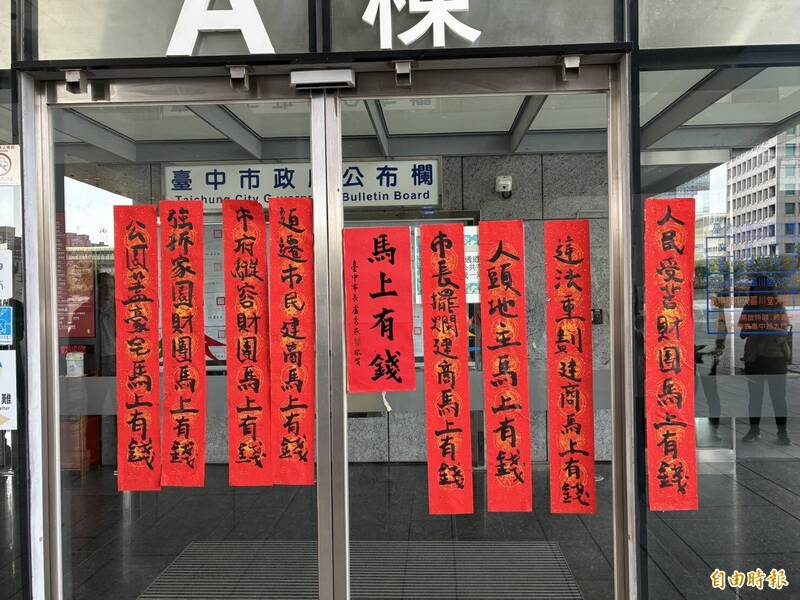 A棟
臺中市政府公布欄
Taichung City Bulletin Board
人民受苦財團馬上有錢
違法重劃建商馬上有錢
人頭地主馬上有錢
市長擺爛建商馬上有錢
馬上有錢
臺中市長盧秀燕 敬賀
迫遷市民建商馬上有錢
市府縱容財團馬上有錢
強拆家園財團馬上有錢
公園蓋豪宅馬上有錢
自由時報